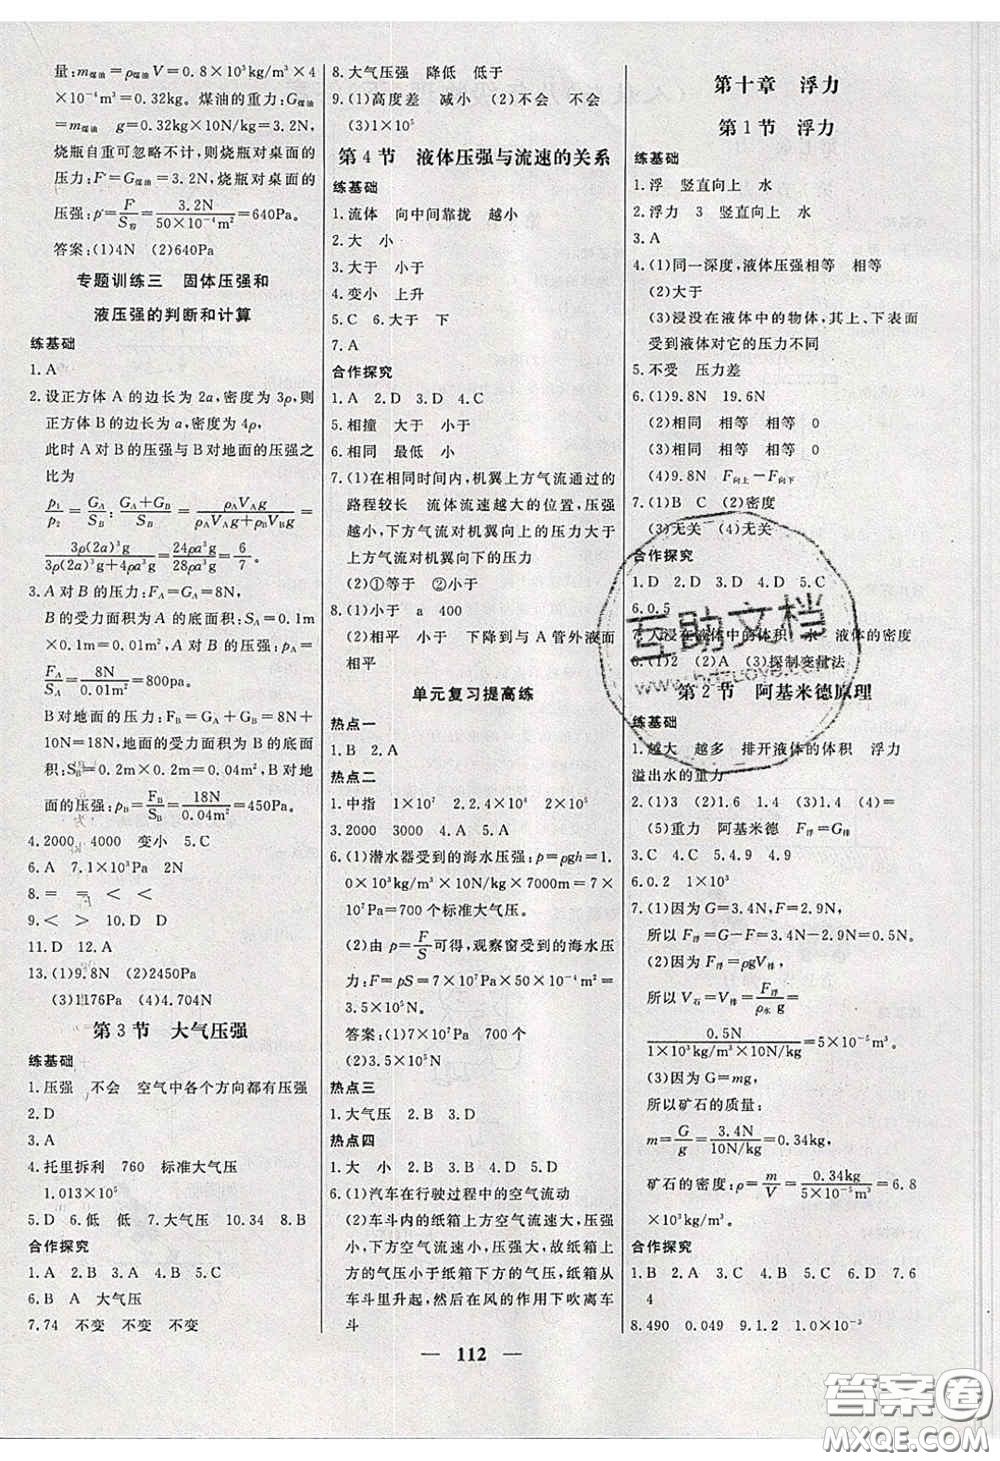 量:m煤油=ρ煤油V=0.8×10³kg/m³×4
×10⁻⁴m³=0.32kg。煤油的重力:G煤油
=m煤油 g=0.32kg×10N/kg=3.2N,
烧瓶自重可忽略不计,则烧瓶对桌面的
压力:F=G煤油=3.2N,烧瓶对桌面的
压强:p=F/S容=3.2N/50×10⁻⁴m²=640Pa。
答案:(1)4N (2)640Pa
专题训练三 固体压强和
液压强的判断和计算
练基础
1.A
2.设正方体A的边长为2a,密度为3ρ,则
正方体B的边长为a,密度为4ρ,
此时A对B的压强与B对地面的压强之
比为
p₁/p₂=GA/SB:GA+GB/SB=ρAVAg/ρAVAg+ρBVBg=
3ρ(2a)³g/3ρ(2a)³g+4ρa³g=24ρa³g/28ρa³g=6/7。
3.A对B的压力:FA=GA=8N,
B的受力面积为A的底面积:SA=0.1m
×0.1m=0.01m²,A对B的压强:
pA=FA/SA=8N/0.01m²=800Pa。
B对地面的压力:FB=GA+GB=8N+
10N=18N,地面的受力面积为B的底面
积:SB=0.2m×0.2m=0.04m²,B对地
面的压强:pB=FB/SB=18N/0.04m²=450Pa。
4.2000 4000 变小 5.C
6.A 7.1×10³Pa 2N
8.= = < <
9.< > 10.D D
11.D 12.A
13.(1)9.8N (2)2450Pa
(3)1176Pa (4)4.704N
第3节 大气压强
练基础
1.压强 不会 空气中各个方向都有压强
2.D
3.A
4.托里拆利 760 标准大气压
1.013×10⁵
5.D 6.低 低 7.大气压 10.34 8.B
合作探究
1.A 2.D 3.B 4.C 5.C
6.B A 大气压
7.74 不变 不变 不变
8.大气压强 降低 低于
9.(1)高度差 减小 (2)不会 不会
(3)1×10⁵
第4节 液体压强与流速的关系
练基础
1.流体 向中间靠拢 越小
2.大 小
3.大于 小于
4.变小 上升
5.C 6.大于 下
7.A
合作探究
1.A 2.D 3.D 4.C
5.相撞 大于 小于
6.相同 最低 小
7.(1)在相同时间内,机翼上方气流通过的
路程较长 流体流速越大的位置,压强
越小,下方气流对机翼向上的压力大于
上方气流对机翼向下的压力
(2)①等于 ②小于
8.(1)小于 a 400
(2)相平 小于 下降到与A管外液面
相平
单元复习提高练
热点一
1.B 2.A
热点二
1.中指 1×10⁷ 2.2.4×10⁴ 2×10⁵
3.2000 3000 4.A 5.A
6.(1)潜水器受到的海水压强:p=ρgh=1.
0×10³kg/m³×10N/kg×7000m=7×
10⁷Pa=700个标准大气压。
(2)由p=F/S可得,观察窗受到的海水压
力:F=pS=7×10⁷Pa×50×10⁻⁴m²=
3.5×10⁵N。
答案:(1)7×10⁷Pa 700个
(2)3.5×10⁵N
热点三
1.大气压 2.B 3.D
热点四
1.大 小 2.B 3.D 4.C 5.D
6.(1)汽车在行驶过程中的空气流动
(2)车斗内的纸箱上方空气流速大,压强
小,下方空气流速小,压强大,故纸箱上方
的气压小于纸箱下方的气压,纸箱就会从
车斗里升起,然后在风的作用下吹离车
斗
第十章 浮力
第1节 浮力
练基础
1.浮 竖直向上 水
2.浮力 3 竖直向上 水
3.A
4.(1)同一深度,液体压强相等 相等
(2)大于
(3)浸没在液体中的物体,其上、下表面
受到液体对它的压力不同
5.不受 压力差
6.(1)9.8N 19.6N
(2)相同 相等 相等 0
(3)相同 相等 相等 0
(4)9.8N F向上-F向下
7.(1)B C (2)密度
(3)无关 (4)无关
合作探究
1.D 2.D 3.D 4.D 5.C
6.0.5
7.浸在液体中的体积 水 液体的密度
(1)2 (2)A (3)控制变量法
第2节 阿基米德原理
练基础
1.越大 越多 排开液体的体积 浮力
溢出水的重力
2.(1)3.4 (2)1.4 (3)1.4 (4)=
(5)重力 阿基米德 F浮=G排
3.C 4.C 5.4.9 4.9
6.0.2 1×10³
7.(1)因为G=3.4N,F=2.9N,
所以F浮=G-F=3.4N-2.9N=0.5N。
(2)因为F浮=ρgV排,
所以V石=V排=F浮/ρ水 g=
0.5N/1×10³kg/m³×10N/kg=5×10⁻⁵m³。
(3)因为G=mg,
所以矿石的质量:
m=G/g=3.4N/10N/kg=0.34kg,
矿石的密度:ρ=m/V=0.34kg/5×10⁻⁵m³=6.8
×10³kg/m³。
合作探究
1.B 2.C 3.D 4.C 5.C 6.D 7.6
4
8.490 0.049 9.1.2 1.0×10⁻³
— 112 —
互助文档
www.hdzuoye.com
答案圈
MXQE.COM